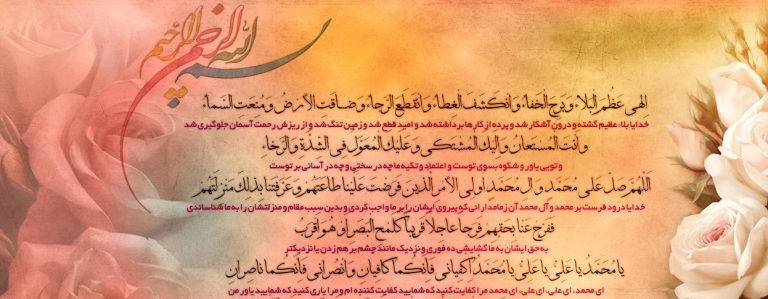 بسم الله الرحمن الرحیم
الهی عَظُمَ البَلاءُ وَبَرِحَ الخَفاءُ وَانکَشَفَ الغِطاءُ وَانقَطَعَ الرَّجاءُ وَضاقَتِ الأرضُ وَمُنِعَتِ السَّماءُ
خدایا بلاء عظیم گشته و درون آشکار شد و پرده از کارها برداشته شد و امید قطع شد و زمین تنگ شد و از ریزش رحمت آسمان جلوگیری شد
وأنتَ المُستَعانُ وَإلَیکَ المُشتَکی وَعَلَیکَ المُعَوَّلُ فِی الشِّدَّةِ وَالرَّخاءِ
و تویی یاور و شکوه بسوی توست و اعتماد و تکیه ما چه در سختی و چه در آسانی بر توست
اللّهُمَّ صَلِّ عَلی مُحَمَّدٍ وَآلِ مُحَمَّدٍ اُولِی الأمرِ الَّذینَ فَرَضتَ عَلَینا طاعَتَهُم وَعَرَّفتَنا بِذلِکَ مَنزِلَتَهُم
خدایا درود فرست بر محمد و آل محمد آن زمامدارانی که پیروی ایشان را بر ما واجب کردی و بدین سبب مقام و منزلتشان را به ما شناساندی
فَفَرِّج عَنّا بِحَقِّهِم فَرَجاً عاجِلاً قَریباً کَلَمحِ البَصَرِ أو هُوَ أقرَبُ
به حق ایشان به ما گشایشی ده فوری و نزدیک مانند چشم بر هم زدن یا نزدیکتر
یا مُحَمَّدُ یا عَلِیُّ یا عَلِیُّ یا مُحَمَّدُ اکفِیانی فَإنَّکُما کافِیانِ وَانصُرانی فَإنَّکُما ناصِرانِ
ای محمد، ای علی، ای علی، ای محمد مرا کفایت کنید که شمایید کفایت کننده ام و مرا یاری کنید که شمایید یاور من